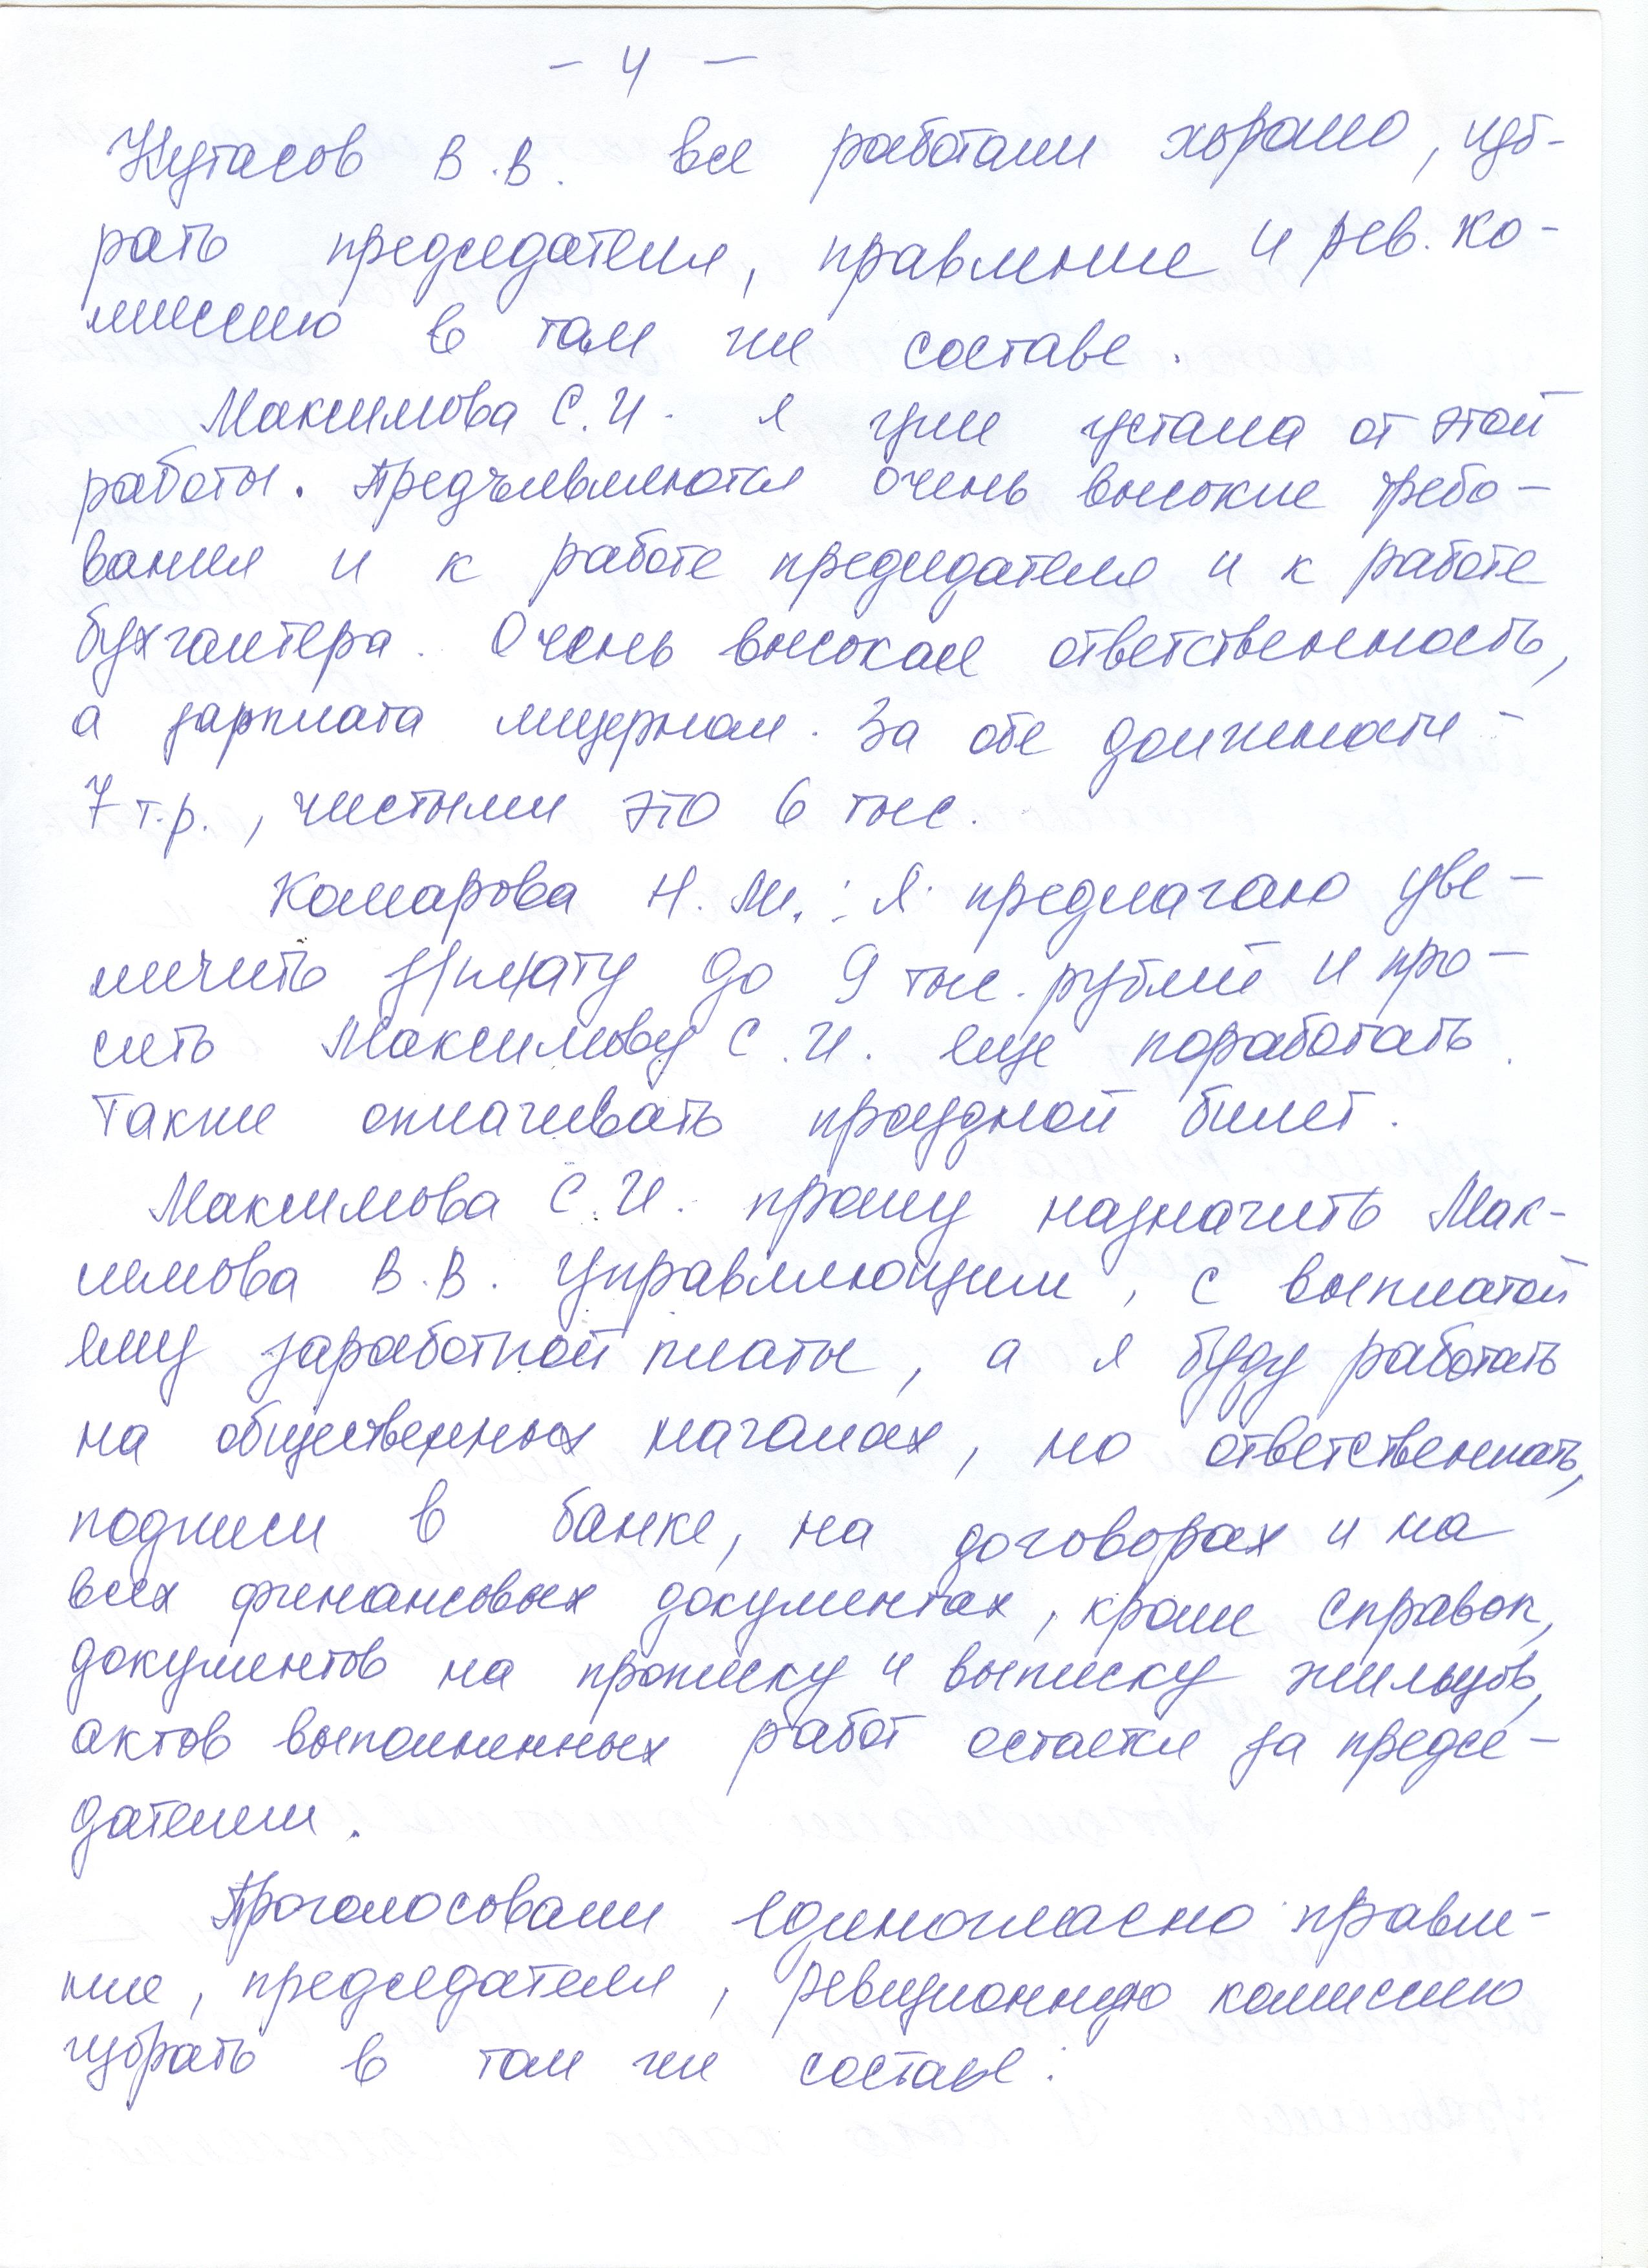 - 4 -
Кутасов В.В. все работали хорошо, изб-
рать председателя, правление и рев. ко-
миссию в том же составе.
Максимова С.И. я уже устала от этой
работы. Предъявляются очень высокие требо-
вания и к работе председателя и к работе
бухгалтера. Очень высокая ответственность,
а зарплата мизерная. За обе должности -
7 т.р., чистыми это 6 тыс.
Комарова Н.М.: Я предлагаю уве-
личить з/плату до 9 тыс. рублей и про-
сить Максимову С.И. еще поработать.
Также оплачивать проездной билет.
Максимова С.И. прошу назначить Мак-
симова В.В. управляющим, с выплатой
ему заработной платы, а я буду работать
на общественных началах, но ответственность,
подписи в банке, на договорах и на
всех финансовых документах, кроме справок,
документов на прописку и выписку жильцов,
актов выполненных работ остается за предсе-
дателем.
Проголосовали единогласно правле-
ние, председателя, ревизионную комиссию
избрать в том же составе: